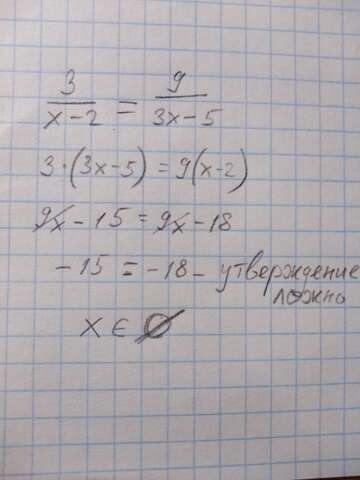 3/(x-2) = 9/(3x-5)
3·(3x-5) = 9(x-2)
9x - 15 = 9x - 18
-15 = -18 - утверждение
ложно
x ∈ ∅